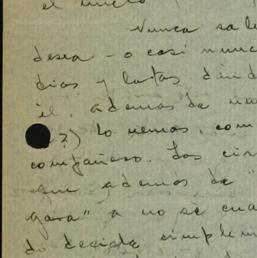 el
Nunca sa
desea - o casi nunc
días y
él, además de
?) lo vemos, com
compañero. Las cir
que además de "
gara" a no se cua
do decide simplem